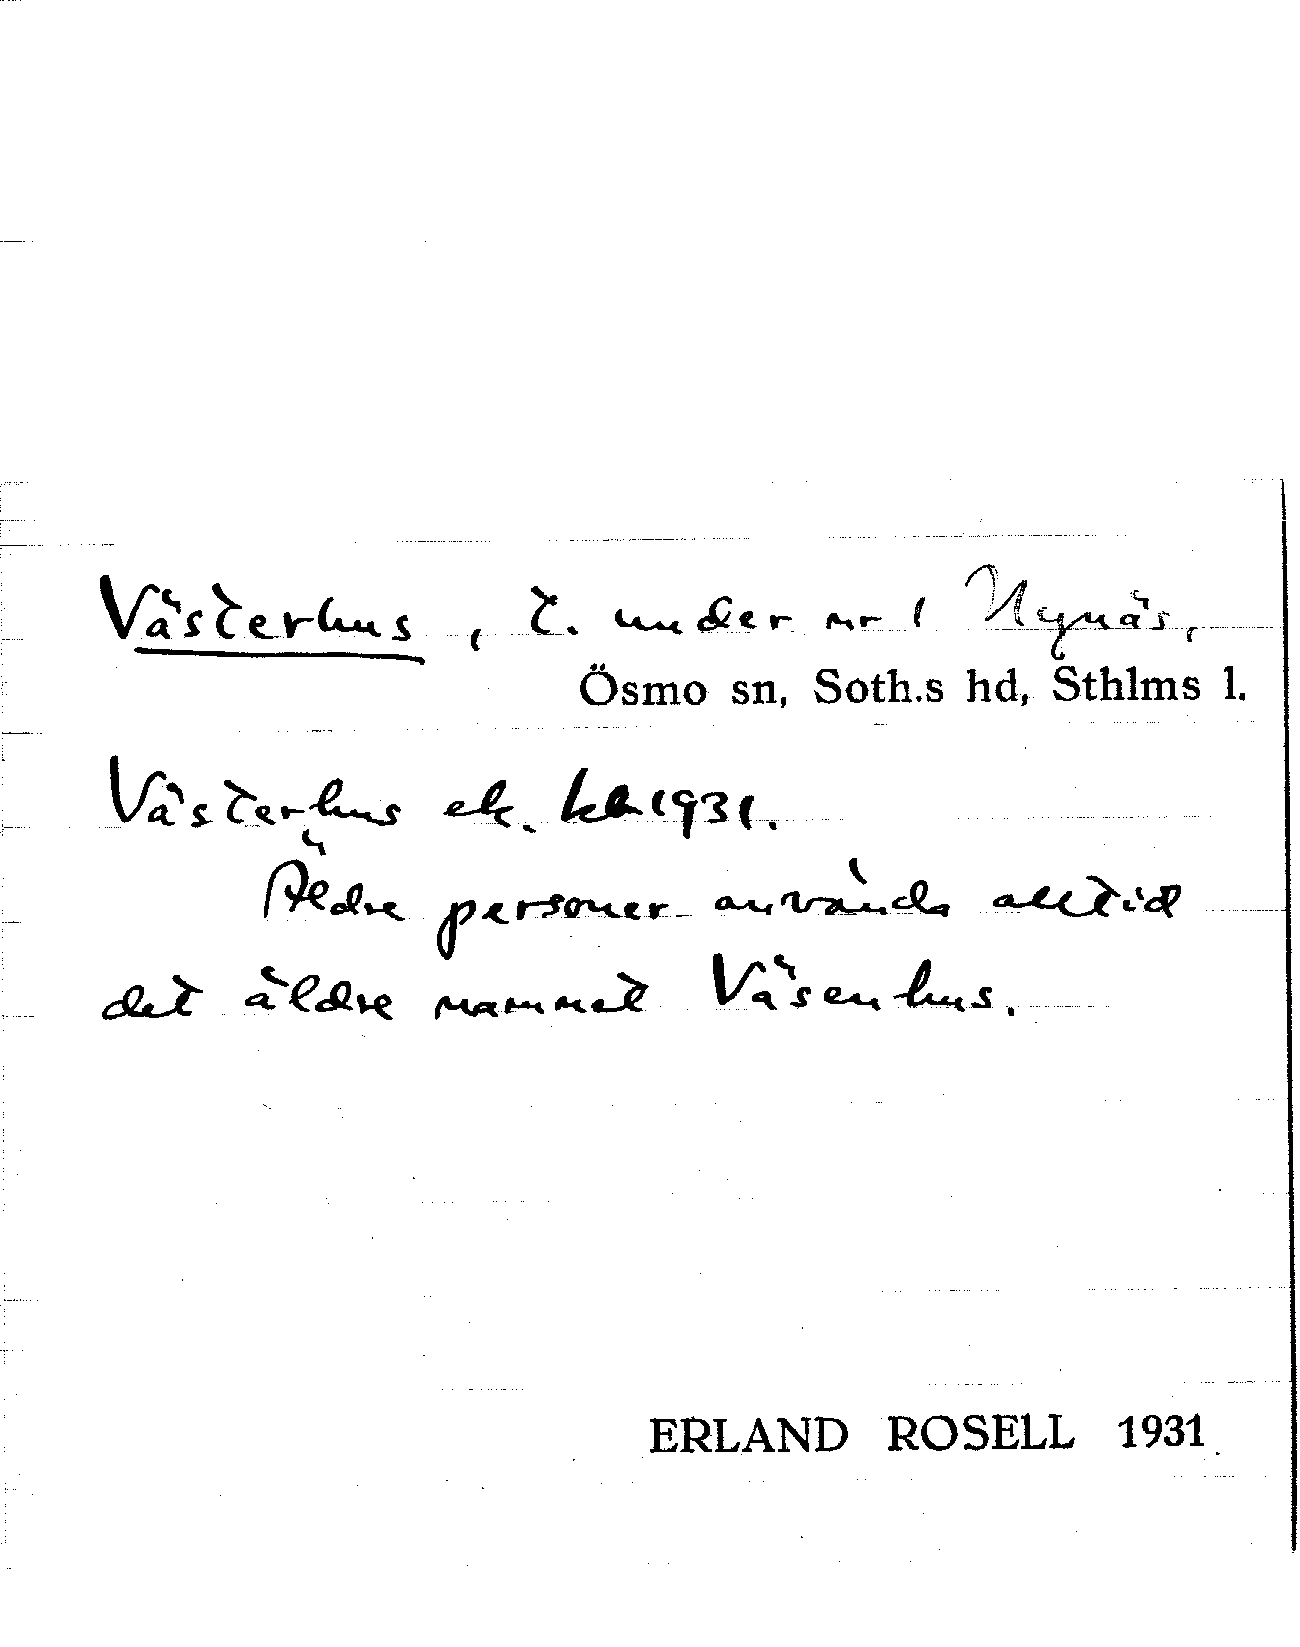 Västerhus, t. under nr 1 Nynäs,
Ösmo sn, Soth.s hd, Sthlms l.
Västerhus ek. kb 1931.
Äldre personer använda alltid
det äldre namnet Väsenhus.
ERLAND ROSELL 1931